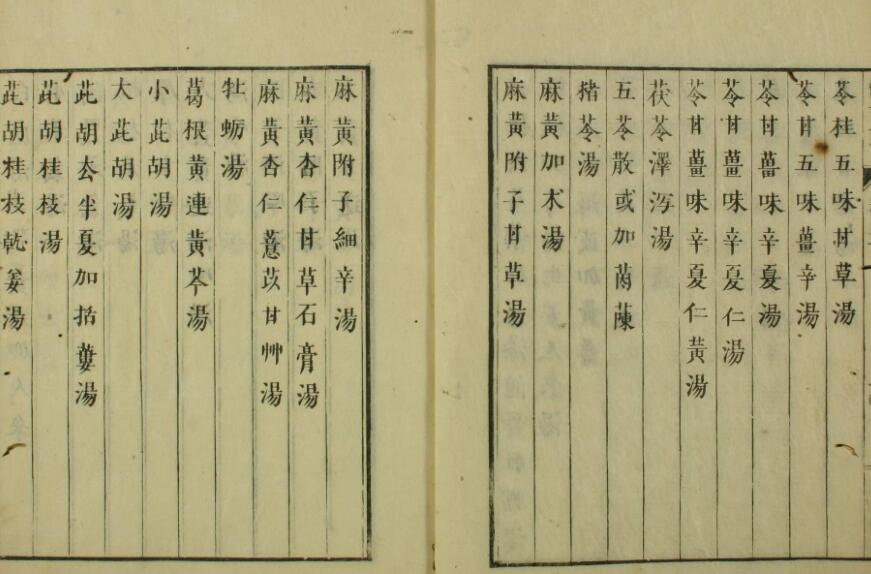 苓桂五味甘草湯
苓甘五味薑辛湯
苓甘薑味辛夏湯
苓甘薑味辛夏仁湯
苓甘薑味辛夏仁黃湯
茯苓澤泻湯
五苓散或加茵蔯
猪苓湯
麻黃加术湯
麻黃附子甘草湯
麻黃附子細辛湯
麻黃杏仁甘草石膏湯
麻黃杏仁薏苡甘艸湯
牡蛎湯
葛根黃連黃芩湯
小茈胡湯
大茈胡湯
茈胡去半夏加括蔞湯
茈胡桂枝湯
茈胡桂枝乾姜湯